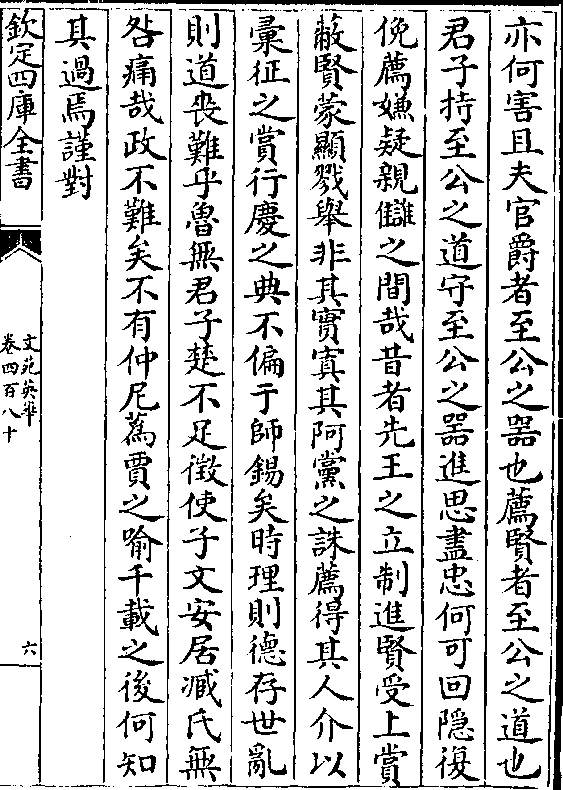 亦何害且夫官爵者至公之器也薦賢者至公之道也
君子持至公之道守至公之器進思盡忠何可回隠復
俛薦嫌疑親讎之間哉昔者先王之立制進賢受上賞
蔽賢蒙顯戮舉非其實寘其阿黨之誅薦得其人介以
彚征之賞行慶之典不偏于師錫矣時理則德存世亂
則道喪難乎魯無君子楚不足徵使子文安居臧氏無
咎痛哉政不難矣不有仲尼蔿賈之喻千載之後何知
其過焉謹對
欽定四庫全書
文苑英華
卷四百八十
六